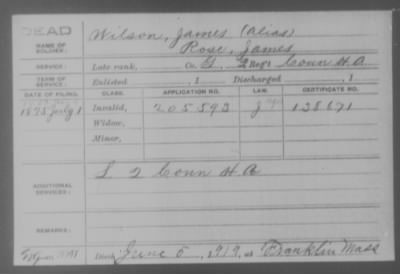 DEAD
NAME OF SOLDIER:
Wilson, James (alias)
Rose, James
SERVICE:
Late rank, Co. L, 2 Reg't Conn H.A.
TERM OF SERVICE:
Enlisted , 1 Discharged , 1
DATE OF FILING. CLASS. APPLICATION NO. LAW. CERTIFICATE NO.
1875 July 1 Invalid, 205593 128671
Widow,
Minor,
ADDITIONAL SERVICES:
L 2 Conn H A
REMARKS:
Died June 5, 1919, at Franklin Mass